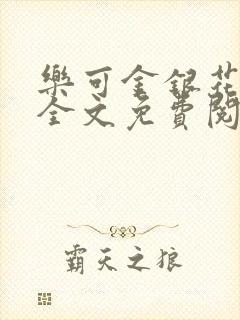 樂可金銀花
全文免費閱
霸天之狼